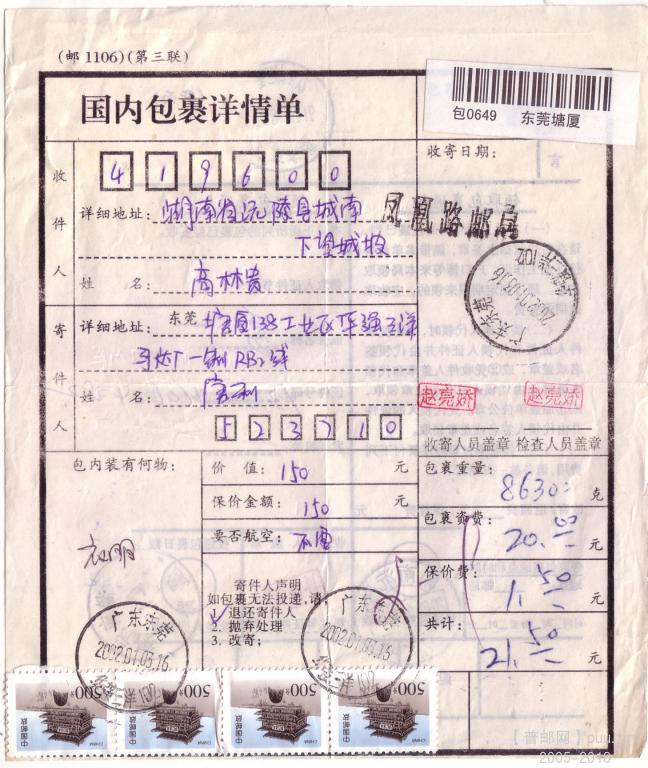 (邮1106)(第三联)
国内包裹详情单
包0649 东莞塘厦
收件人
4 1 9 6 0 0
收寄日期:
详细地址: 湖南省沅陵县城南
下望城坡
凤凰路邮局
姓名: 高林贵
广东东莞
寄件人
详细地址: 东莞 塘厦138工业区华强三洋
马达厂一制RB2线
姓名:
5 2 3 7 1 0
赵亮娇 赵亮娇
收寄人员盖章 检查人员盖章
包内装有何物:
衣服
价值: 150 元
保价金额: 150 元
要否航空: 不需
包裹重量: 8630 克
包裹资费: 20.00 元
保价费: 1.50 元
共计: 21.50 元
寄件人声明
如包裹无法投递,请:
1. 退还寄件人
2. 抛弃处理
3. 改寄;
广东东莞
2002.01.05.16
广东东莞
2002.01.05.16
500分 500分 500分 500分
中国邮政 中国邮政 中国邮政 中国邮政
CHINA CHINA CHINA CHINA
【普邮网】
2005-2018